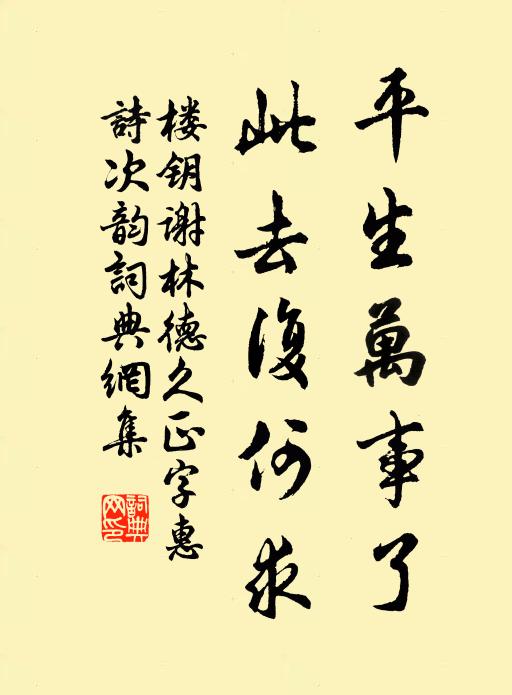 平生萬事了
此去復何求
楼钥谢林德久正字惠
詩次韵詞典網集
詞典
网印